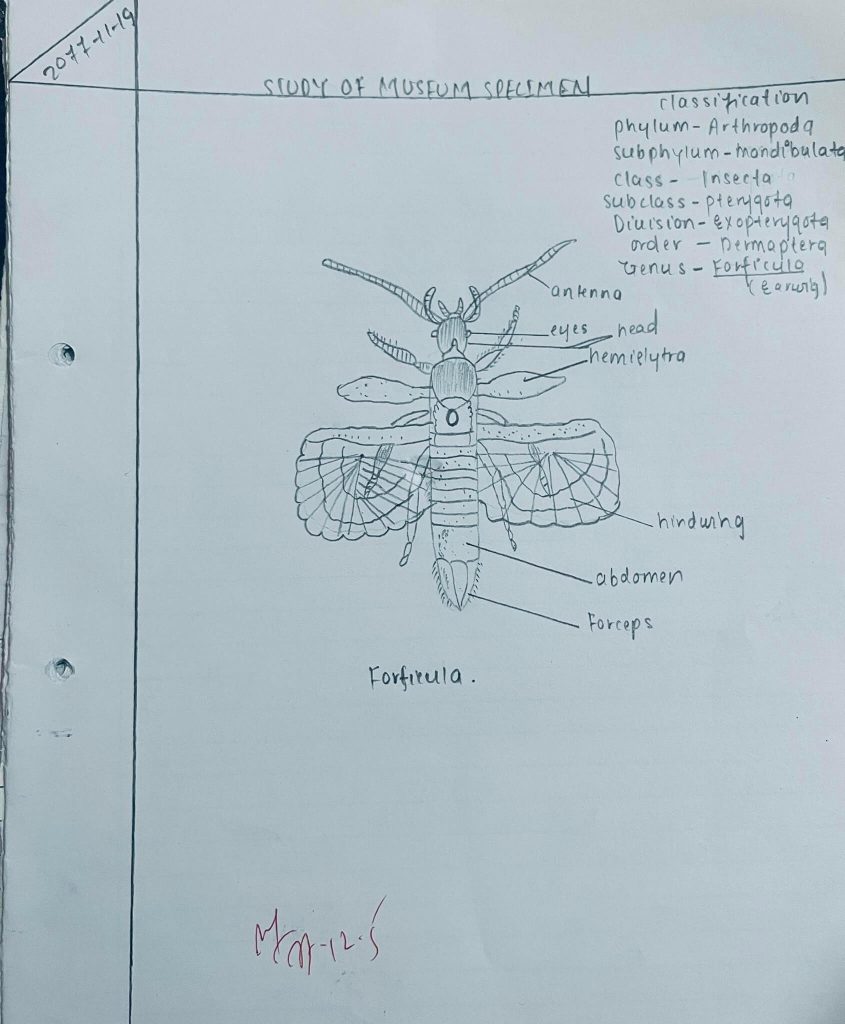 2077-11-19
STUDY OF MUSEUM SPECIMEN
classification
phylum - Arthropoda
subphylum - mandibulata
class - Insecta
subclass - pterygota
Division - exopterygota
order - Dermaptera
Genus - Forficula
(Earwig)
antenna
eyes head
hemielytra
hindwing
abdomen
Forceps
Forficula.